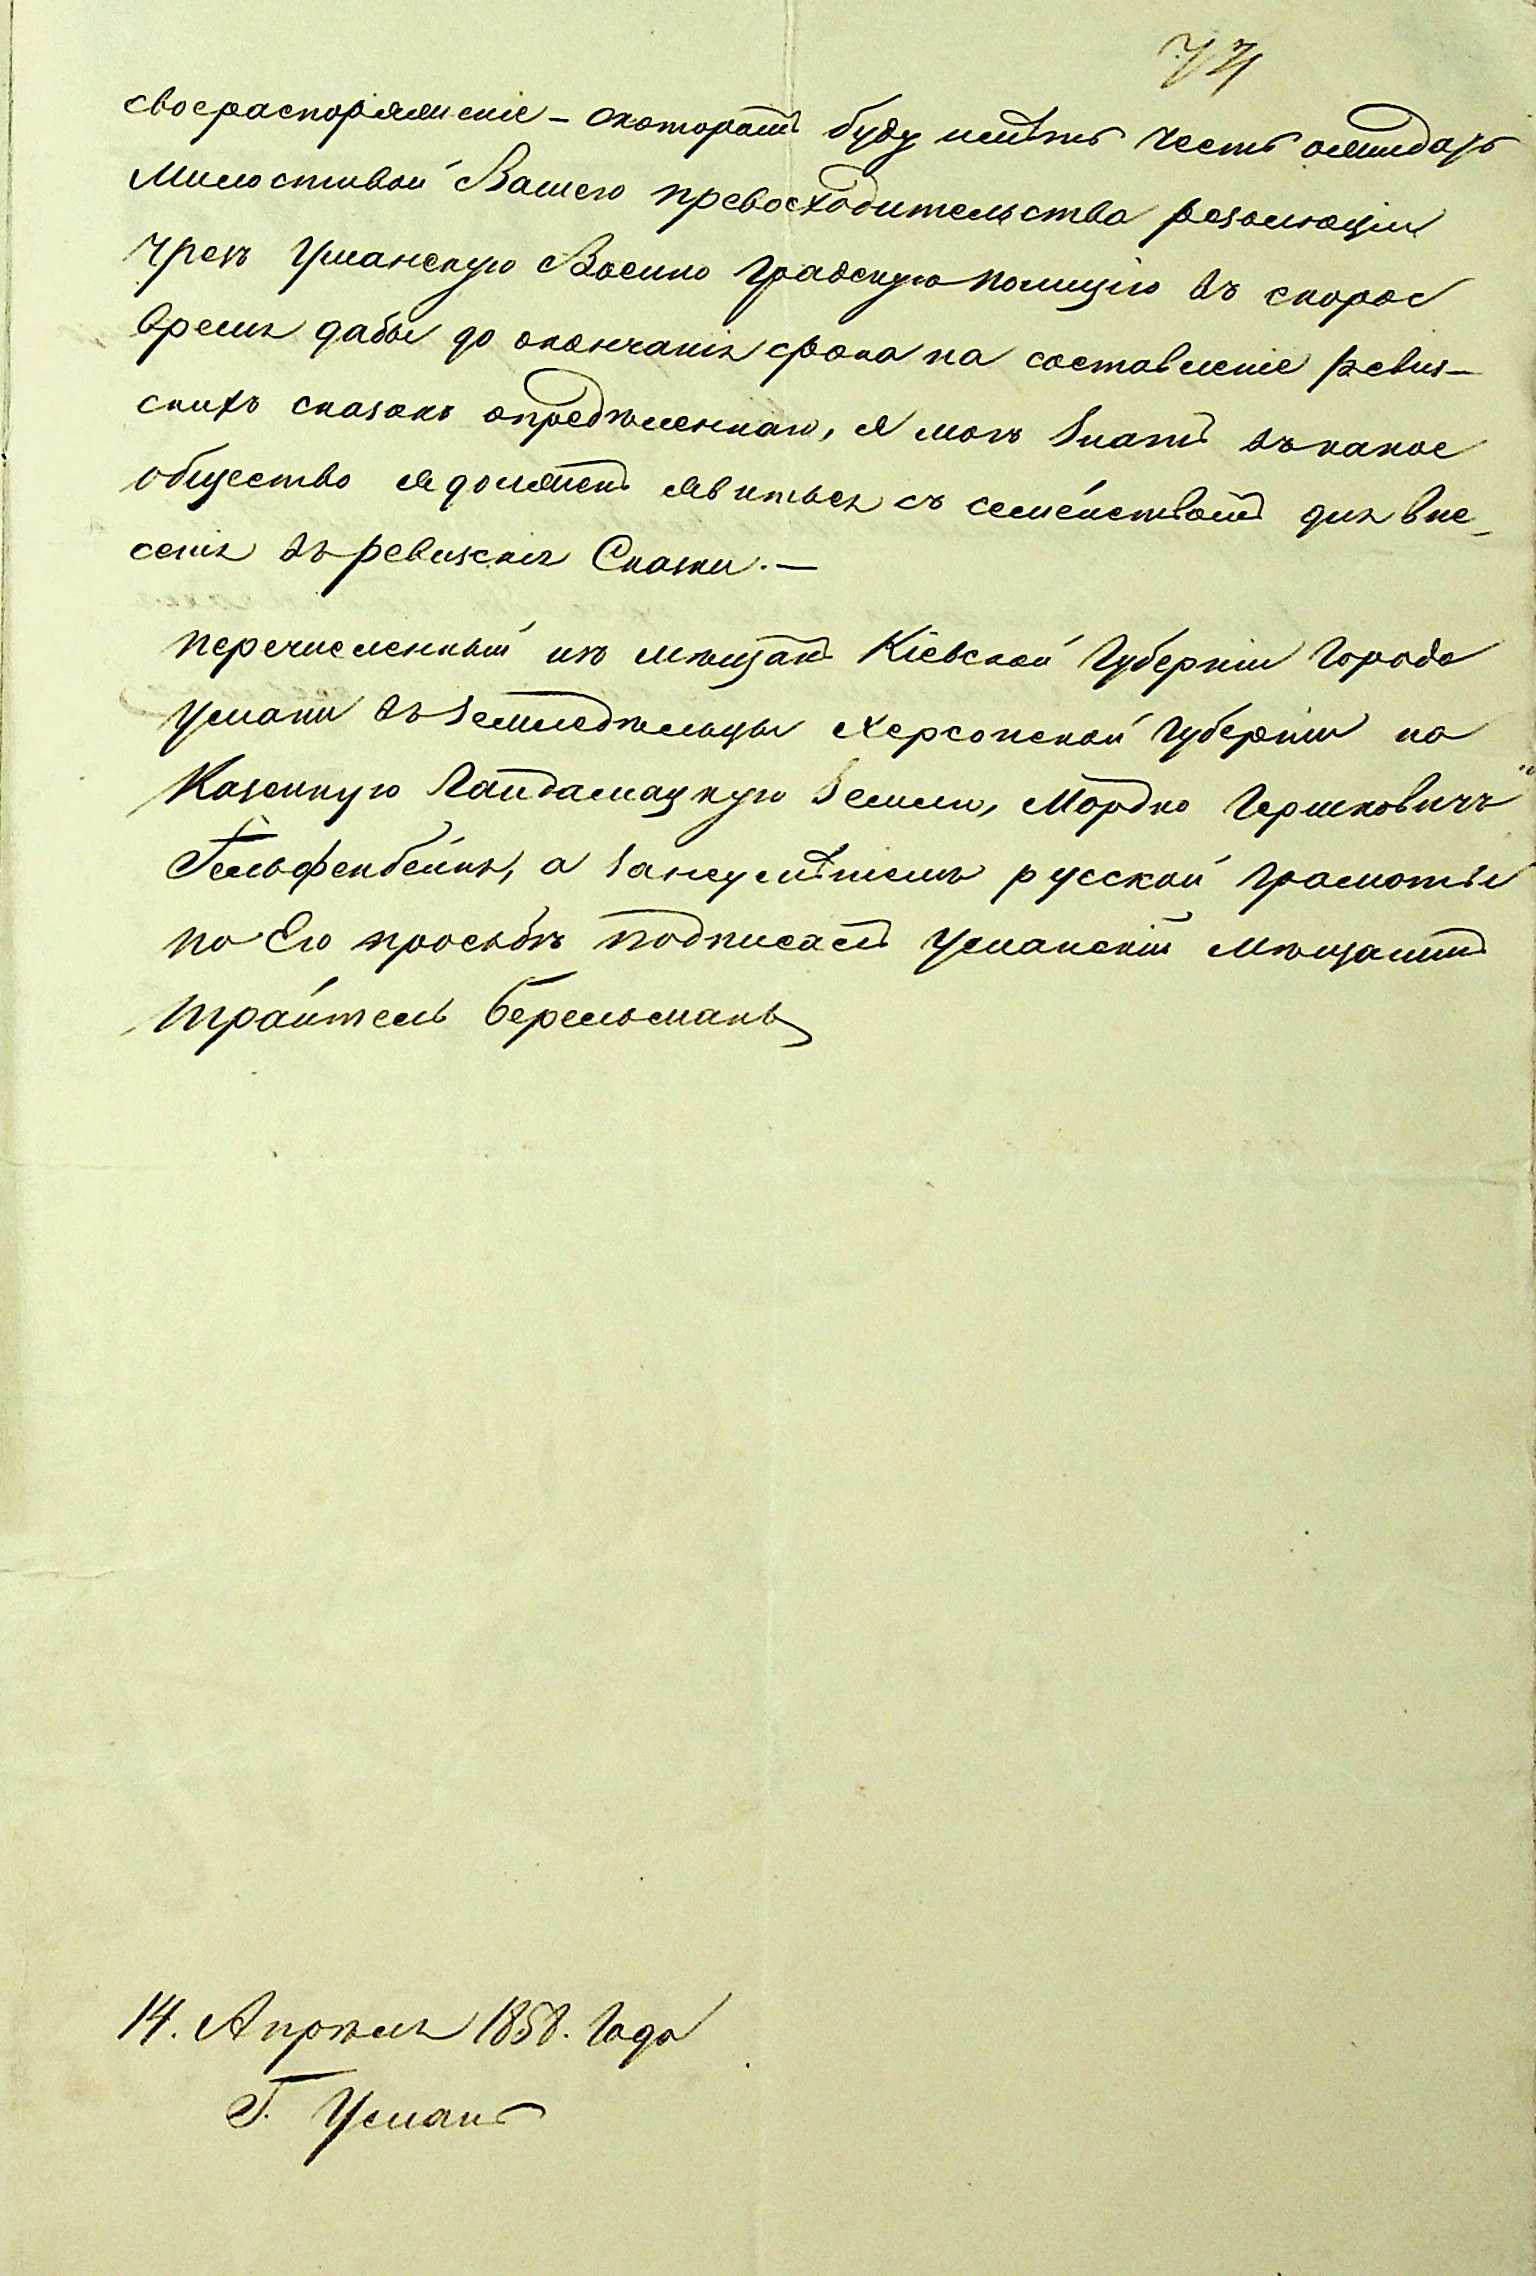 77
свое распоряженіе – о котором буду имѣть честь ожидать
Милостивой Вашего превосходительства резолюціи
чрезъ Уманскую Военно Градскую полицію въ скорое
время дабы до окончанія срока на составленіе ревиз–
скихъ сказокъ опредѣленнаго, я могъ знать въ какое
общество я должен явиться съ семействомъ для вне-
сенія въ ревизскія Сказки. —
перечисленный изъ мѣщанъ Кіевской Губерніи Города
Умани въ земледѣльцы Херсонской Губерніи на
Казенную Гайдамацкую землю, Мордко Гершковичъ
Гельфенбейнъ, а за неумѣніемъ русской грамоты
по Его просьбѣ подписалъ Уманскій мѣщанинъ
Трайтель Берельманъ
14. Апрѣля 1858. Года
Г. Умань